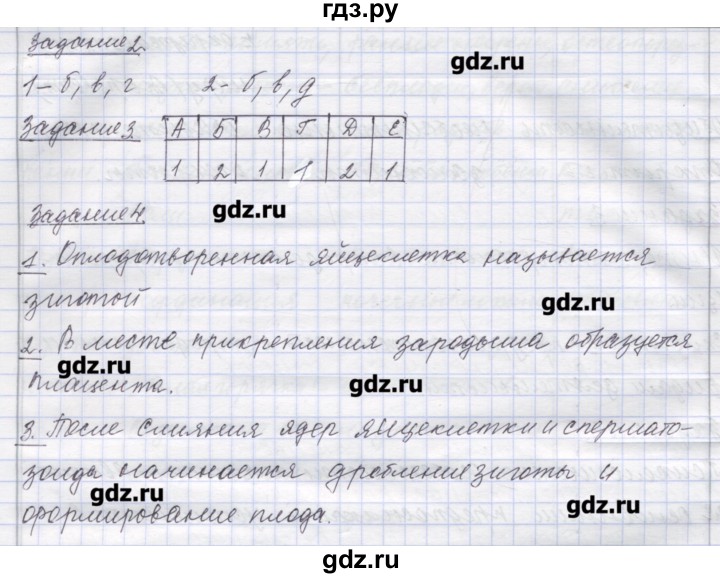 гдз.ру
Задание 2.
1- б, в, г 2- б, в, д
Задание 3
А Б В Г Д Е
1 2 1 1 2 1
Задание 4.
1. Оплодотворенная яйцеклетка называется
зиготой
2. В месте прикрепления зародыша образуется
плацента.
3. После слияния ядер яйцеклетки и спермато-
зоида начинается дробление зиготы и
формирование плода.
gdz.ru
gdz.ru
gdz.ru
gdz.ru
gdz.ru
gdz.ru
gdz.ru
gdz.ru